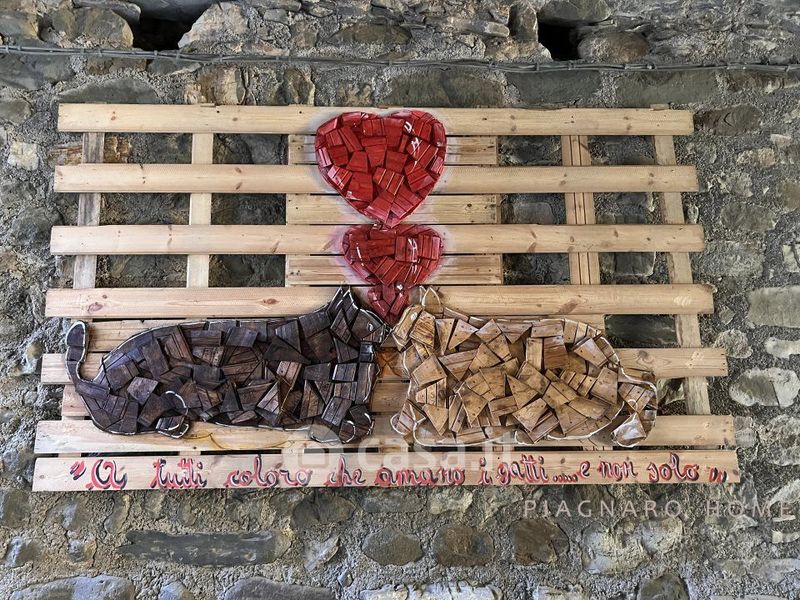 casa.it
"A tutti coloro che amano i gatti.....e non solo"
PIAGNARO HOME